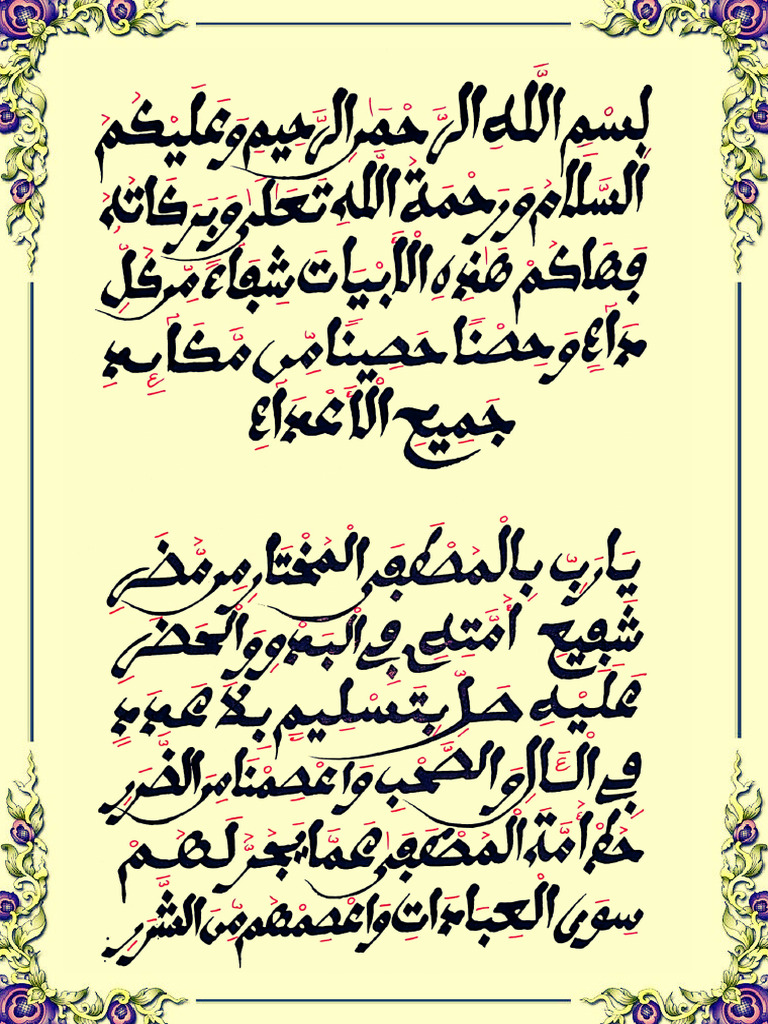 بِسْمِ اللَّهِ الرَّحْمَٰنِ الرَّحِيمِ وَعَلَيْكُمْ
السَّلَامُ وَرَحْمَةُ اللَّهِ تَعَالَىٰ وَبَرَكَاتُهُ
فَهَاكُمْ هَٰذِهِ الْأَبْيَاتَ شِفَاءً مِّن كُلِّ
دَآءٍ وَحِصْنًا حَصِينًا مِّن مَّكَآئِدِ
جَمِيعِ الْأَعْدَآءِ
يَا رَبِّ بِالْمُصْطَفَى الْمُخْتَارِ مِن مُّضَرِ
شَفِيعِ أُمَّتِهِ فِي الْبَدْوِ وَالْحَضَرِ
عَلَيْهِ صَلِّ بِتَسْلِيمٍ بِلَا عَدَدٍ
فِي الْآلِ وَالصَّحْبِ وَاعْصِمْنَا مِنَ الضَّرَرِ
خُذْ أُمَّةَ الْمُصْطَفَى عَمَّا يَجُرُّ لَهُمْ
سِوَى الْعِبَادَاتِ وَاعْصِمْهُم مِّنَ الشَّرَرِ